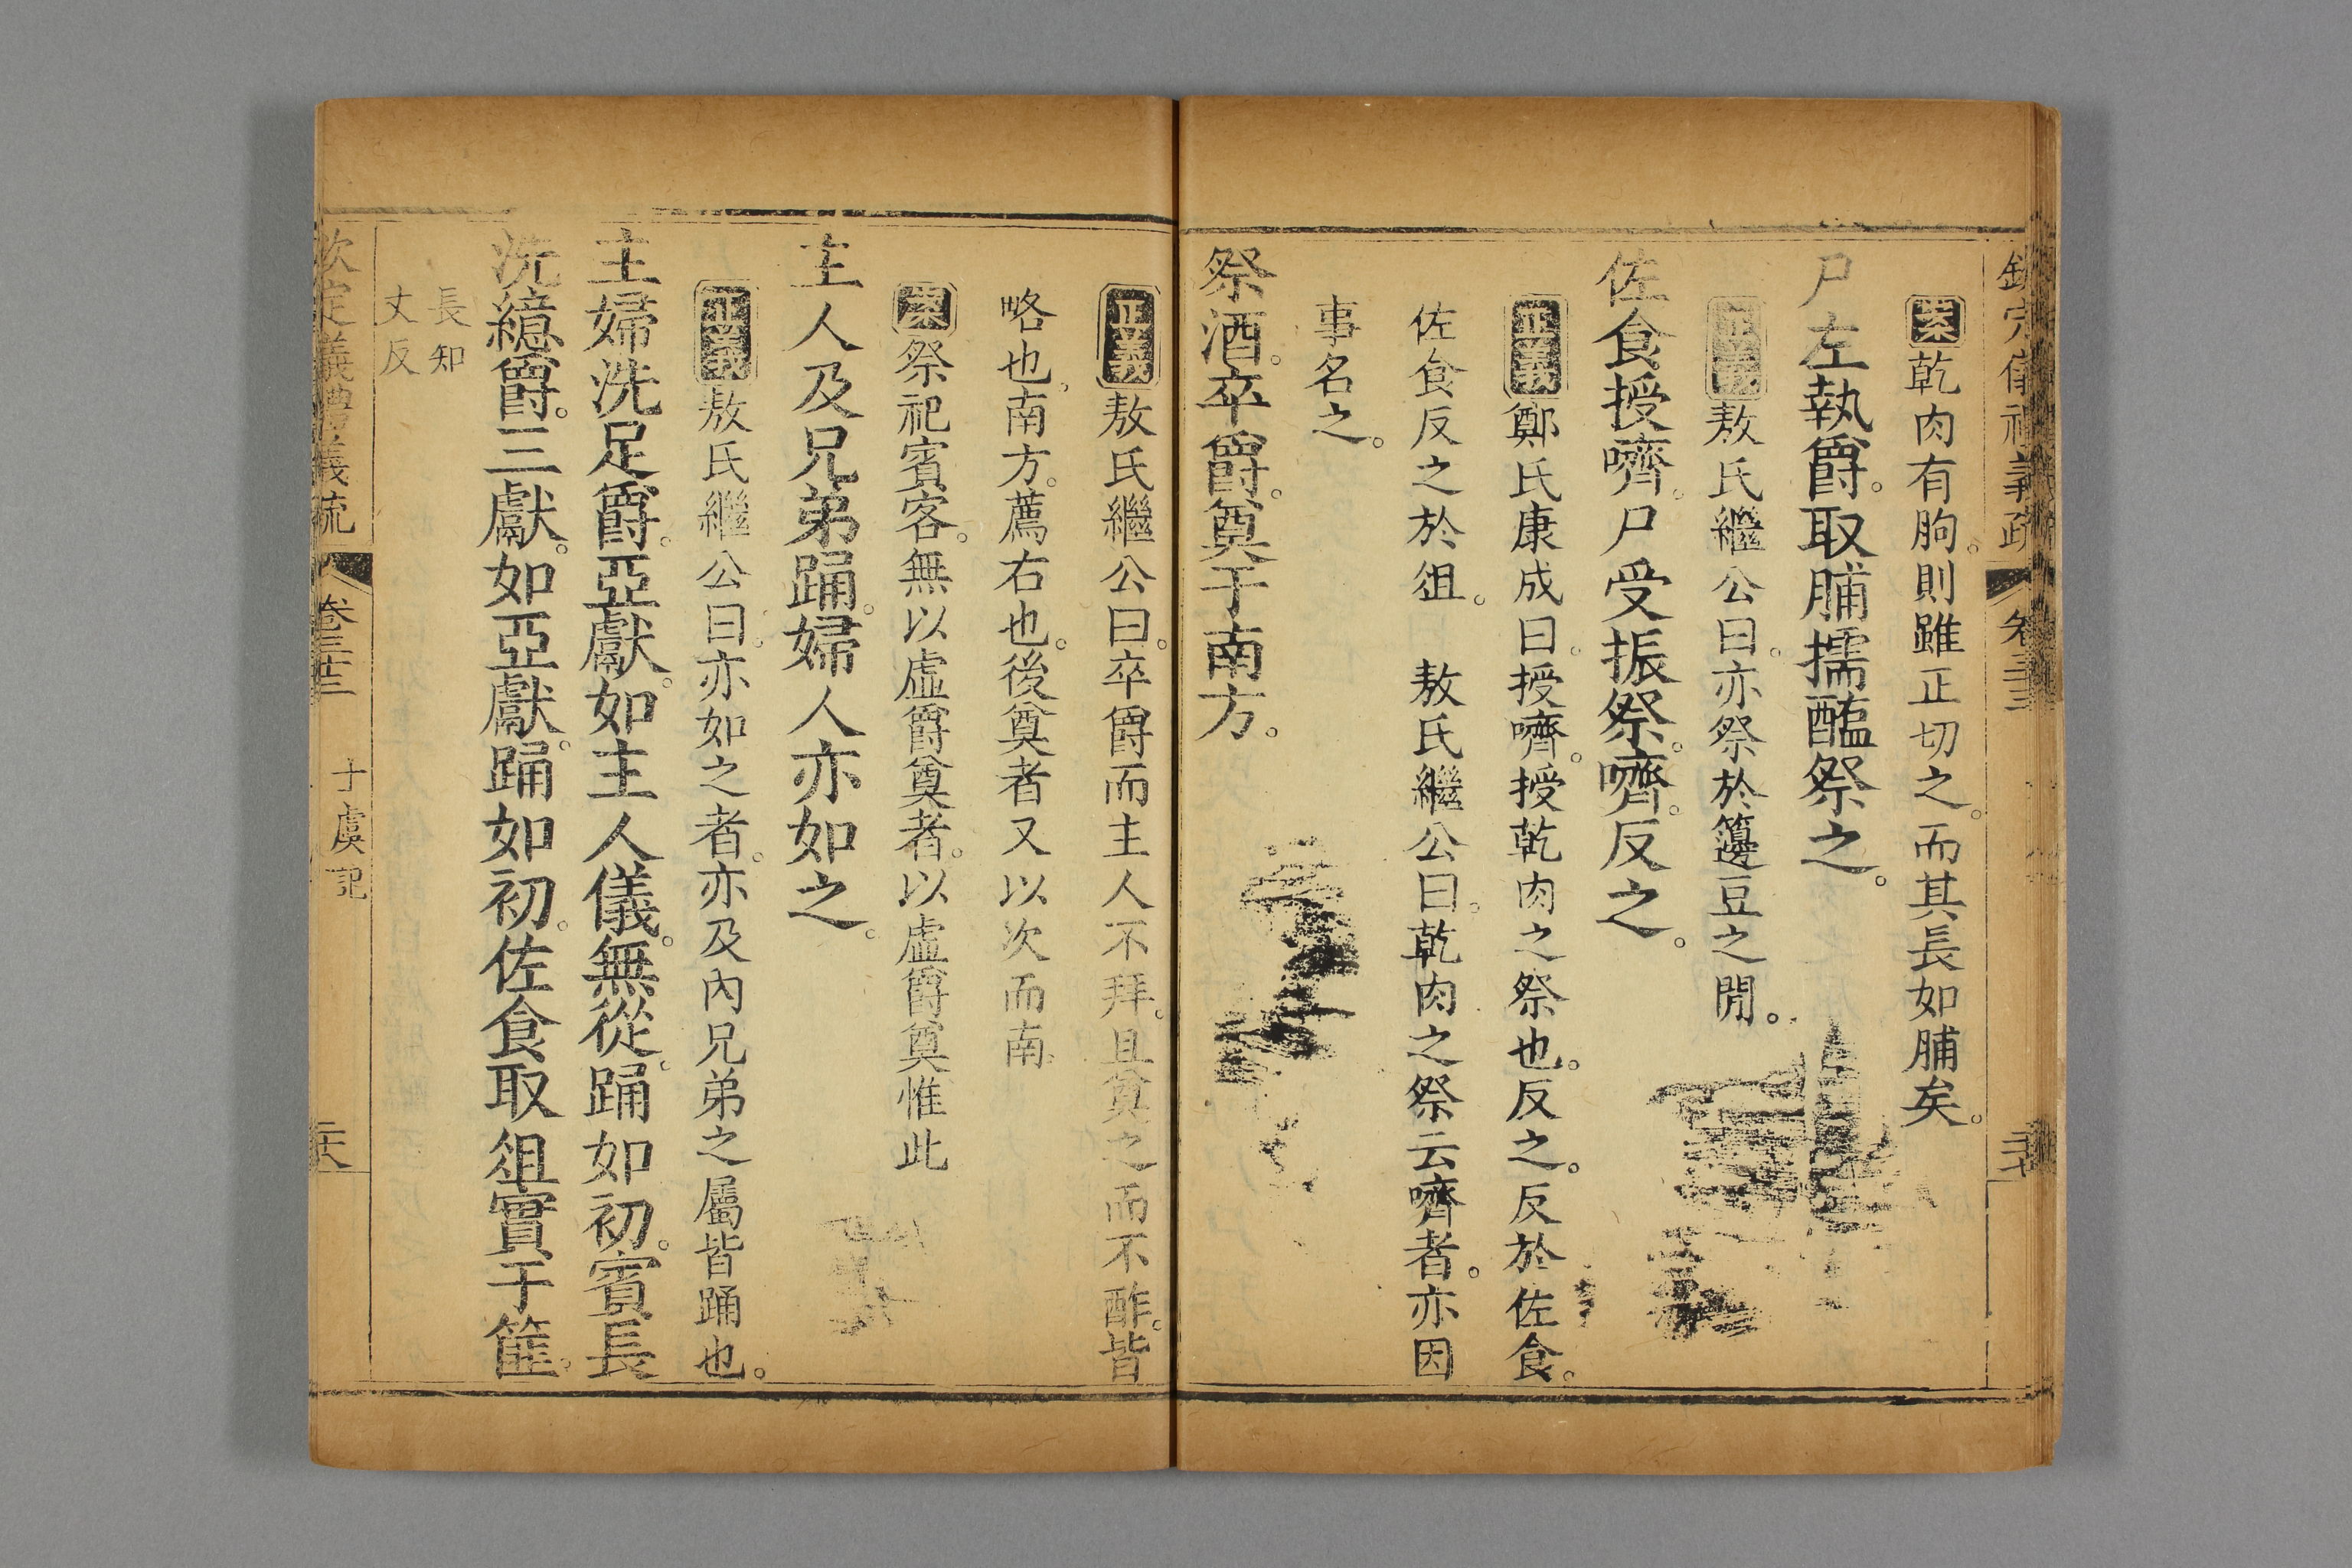 欽定儀禮義疏 卷三十三
案乾肉有朐。則雖正切之。而其長如脯矣。
尸左執爵。取脯擩醢祭之。
正義敖氏繼公曰。亦祭於籩豆之閒。
佐食授嚌。尸受振祭。嚌。反之。
正義鄭氏康成曰。授嚌。授乾肉之祭也。反之。反於佐食。
佐食反之於俎。 敖氏繼公曰。乾肉之祭云嚌者。亦因
事名之。
祭酒。卒爵。奠于南方。
正義敖氏繼公曰。卒爵而主人不拜。且奠之而不酢。皆
略也。南方。薦右也。後奠者又以次而南。
案祭祀賓客。無以虛爵奠者。以虛爵奠惟此
主人及兄弟踊。婦人亦如之。
正義敖氏繼公曰。亦如之者。亦及內兄弟之屬皆踊也。
主婦洗足爵。亞獻。如主人儀。無從。踊如初。賓長
洗繶爵。三獻。如亞獻。踊如初。佐食取俎實于篚。
長知
丈反
欽定儀禮義疏 卷三十三 士虞記 二十八